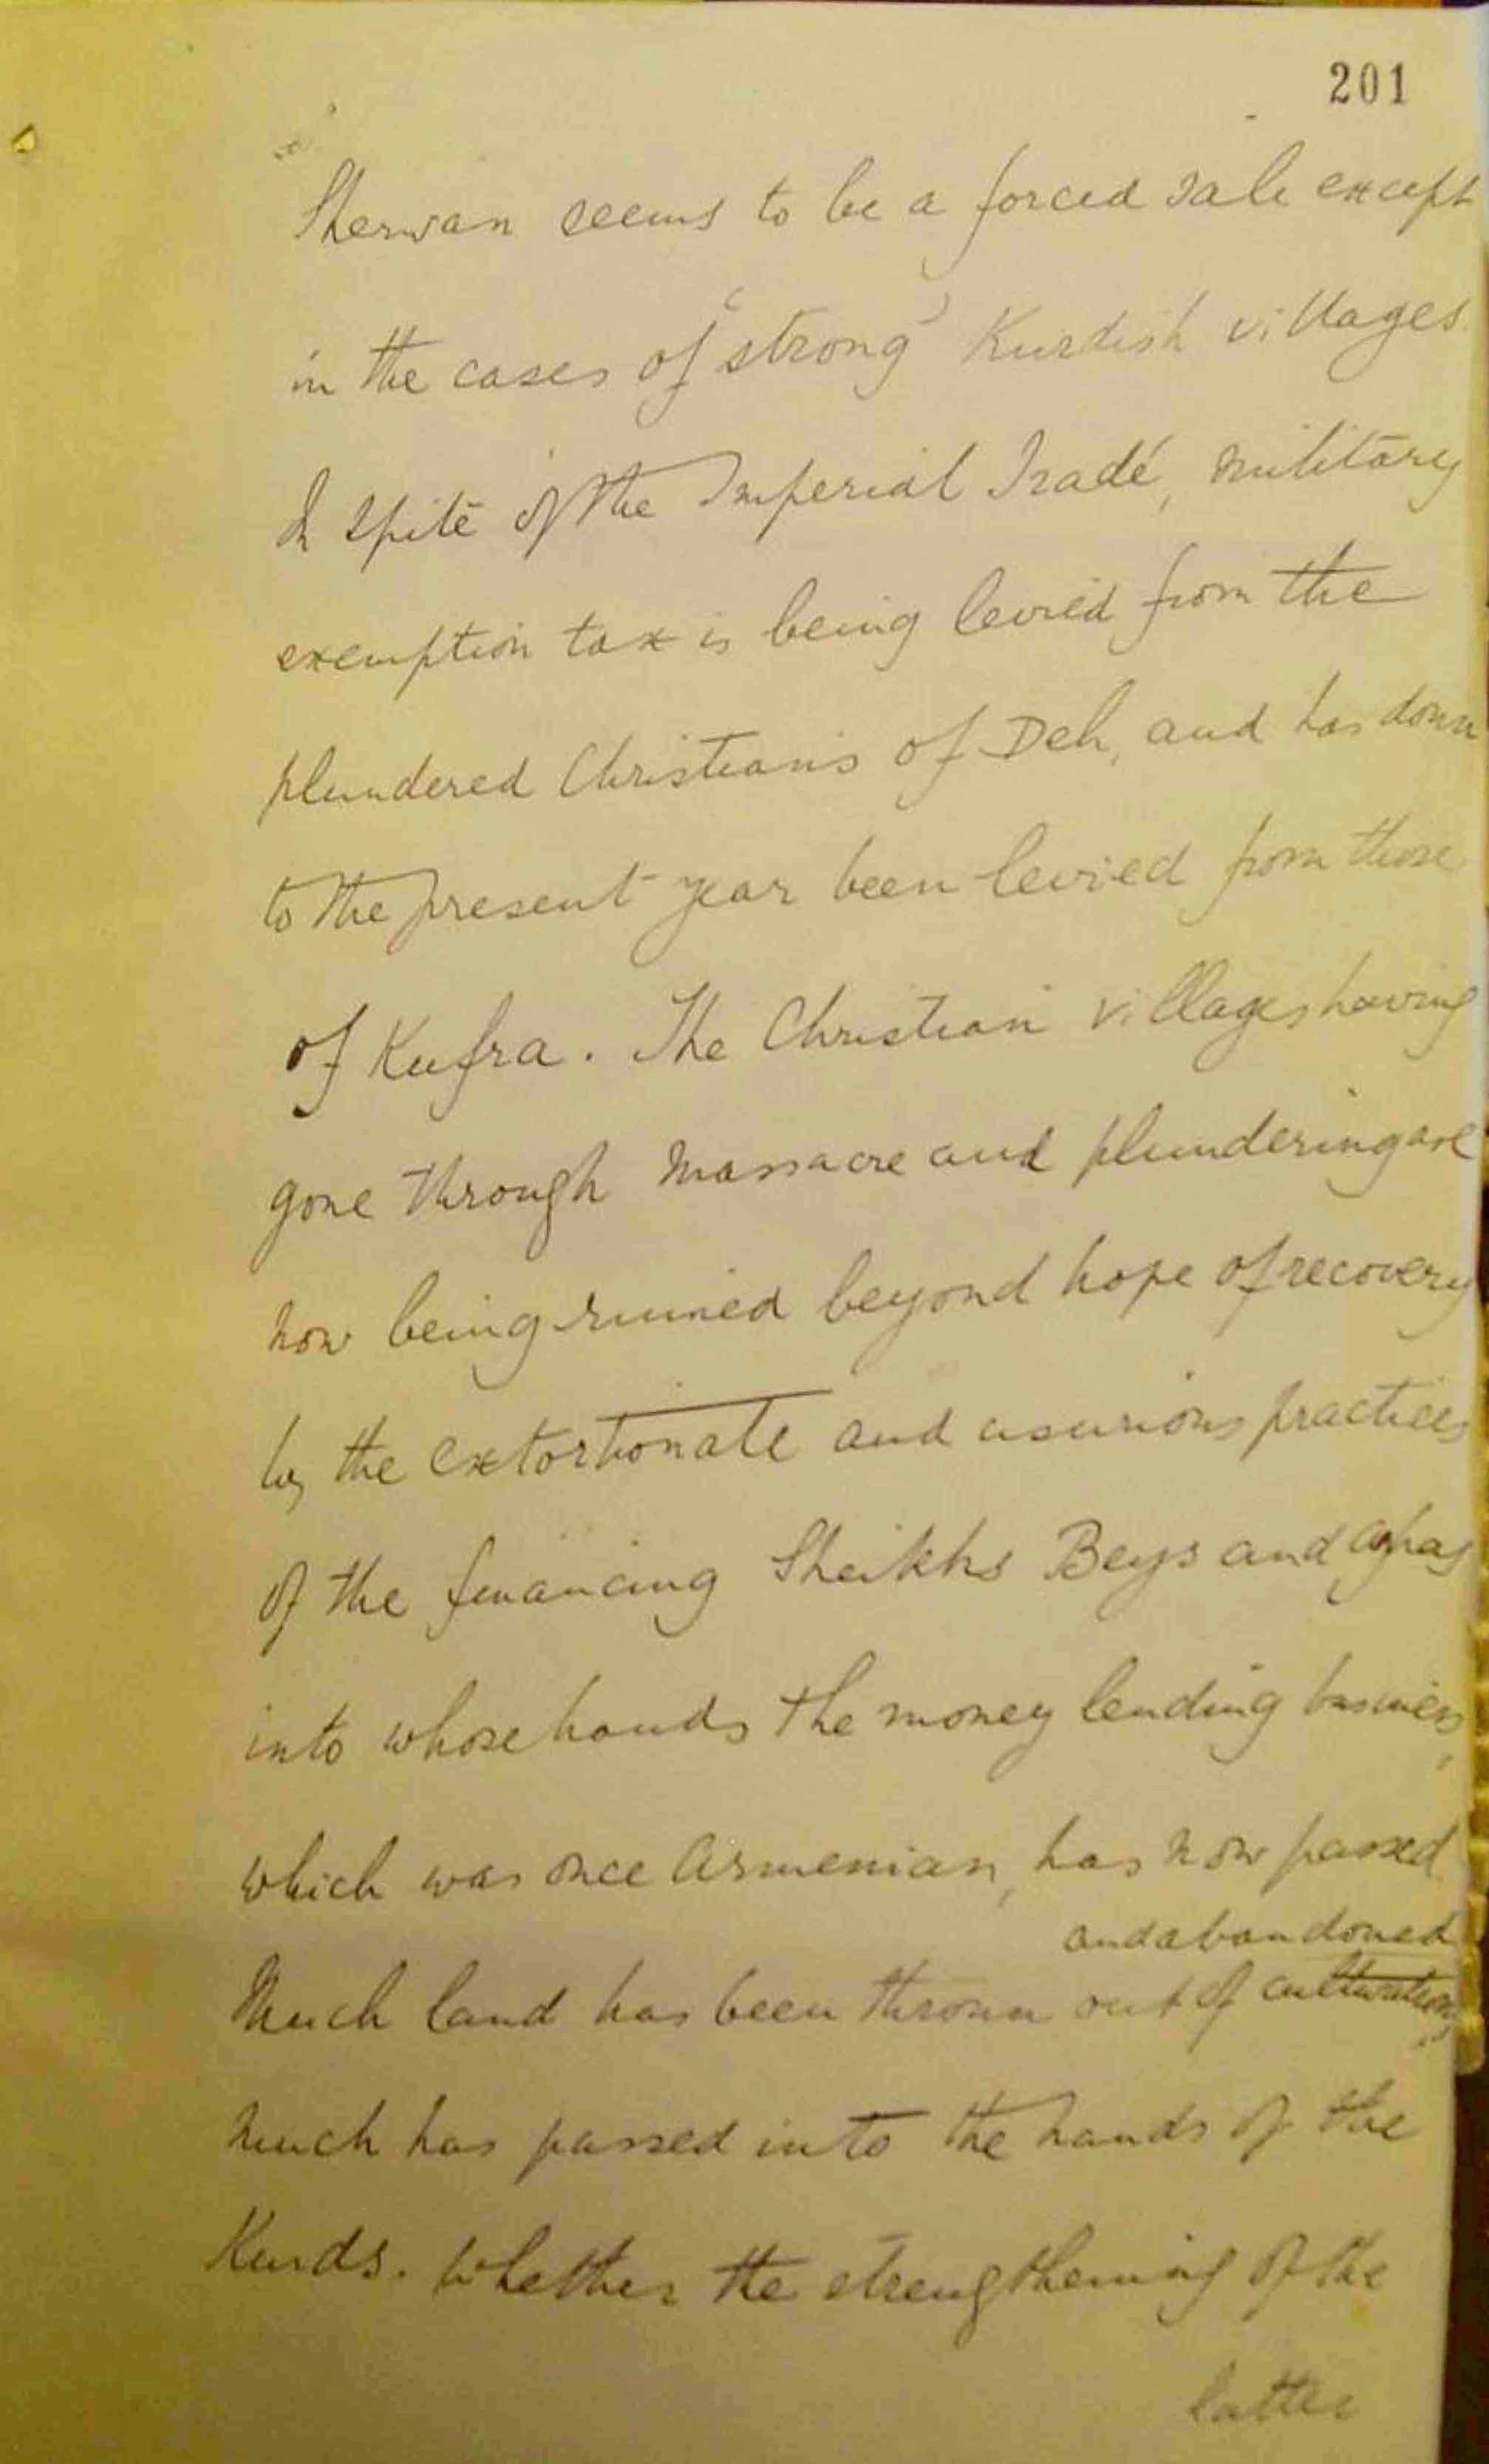 201
Sherwan seems to be a forced sale except
in the cases of 'strong' Kurdish villages.
In spite of the Imperial Iradé, military
exemption tax is being levied from the
plundered Christians of Deh, and has down
to the present year been levied from those
of Kufra. The Christian villages having
gone through massacre and plundering are
now being ruined beyond hope of recovery
by the extortionate and usurious practices
of the financing Sheikhs Beys and Aghas
into whose hands the money lending business,
which was once Armenian, has now passed.
and abandoned
Much land has been thrown out of cultivation,
much has passed into the hands of the
Kurds. Whether the strengthening of the
latter